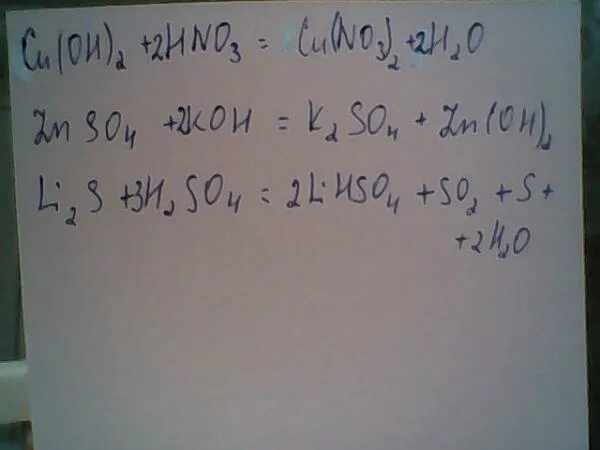 Cu(OH)₂ +2HNO₃ = Cu(NO₃)₂ +2H₂O
ZnSO₄ +2KOH = K₂SO₄ + Zn(OH)₂
Li₂S +3H₂SO₄ = 2LiHSO₄ +SO₂ +S+
+2H₂O